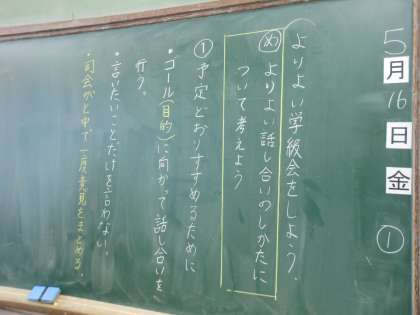 5月16日金①
よりよい学級会をしよう。
めよりよい話し合いのしかたに
ついて考えよう
①予定どおりすすめるために
・ゴール(目的)に向かって話し合いを
行う。
・言いたいことだけを言わない。
・司会がと中で一度意見をまとめる。